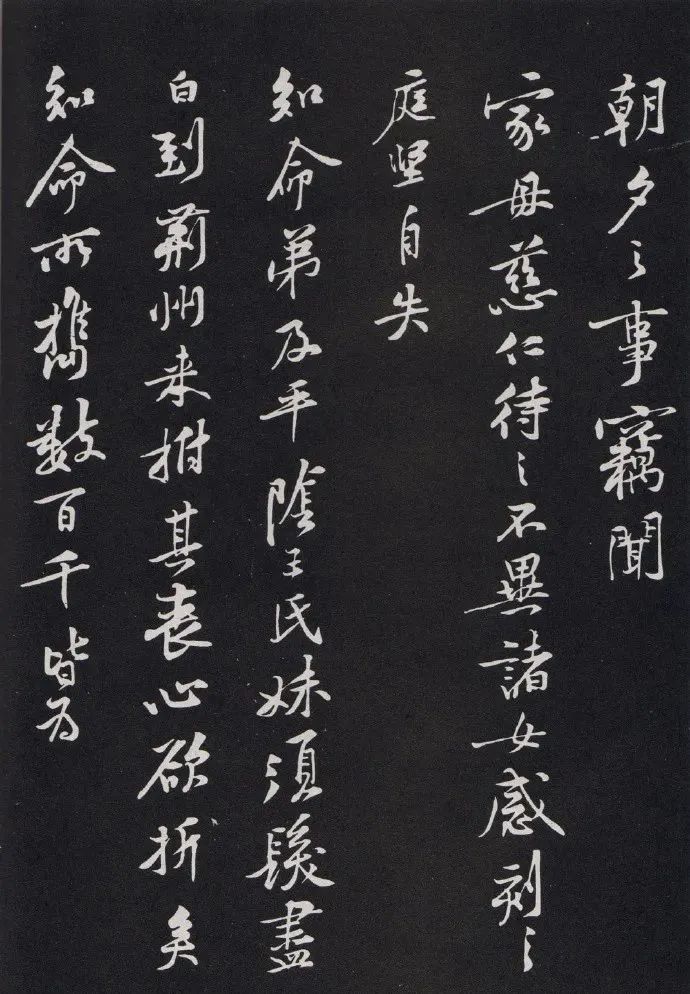 朝夕之事竊聞
家母慈仁待之不異諸女感刻之
庭堅自失
知命弟及平陰王氏妹須鬢盡
白到荊州来拊其喪心欲折矣
知命所攜数百千皆为